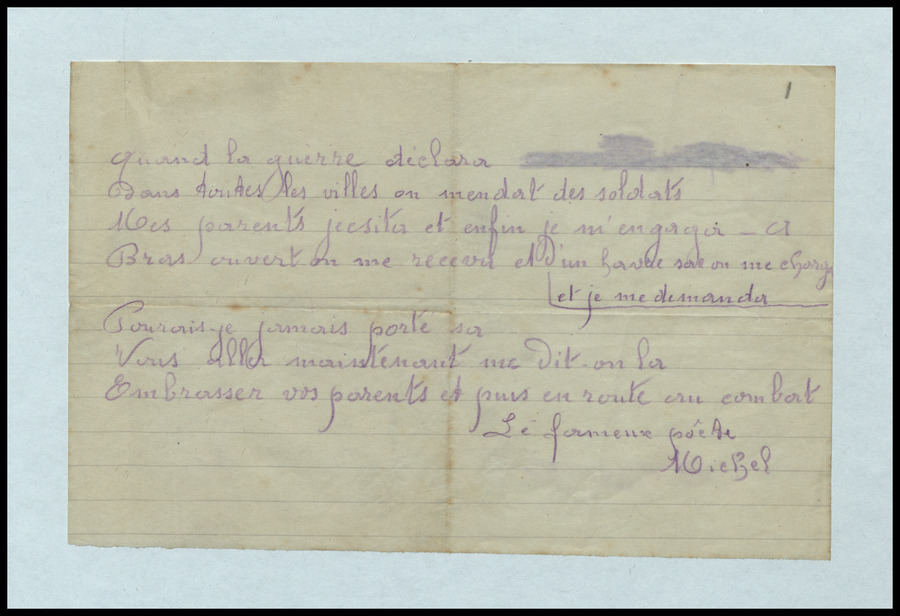 1
Quand la guerre déclara
Dans toutes les villes on mendat des soldats
Mes parents jecsita et enfin je m'engaga - A
Bras ouvert on me receva et d'un havre sac on me charg
et je me demanda
Pourais-je jamais porté sa
Vous aller maintenant me dit-on la
Embrasser vos parents et puis en route au combat
Le fameux poête
Michel